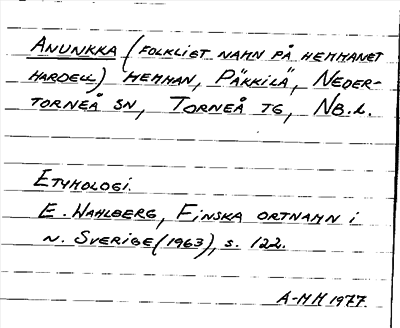 ANUNKKA (FOLKLIGT NAMN PÅ HEMMANET
HARDELL) HEMMAN, PÄKKILÄ, NEDER-
TORNEÅ SN, TORNEÅ TG, NB.L.
ETYMOLOGI.
E. WAHLBERG, FINSKA ORTNAMN I
N. SVERIGE (1963), S. 122.
A-MH 1977.